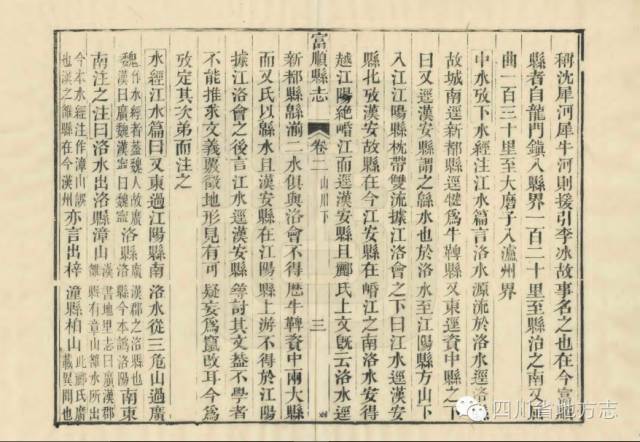 稱沈犀河犀牛河則援引李冰故事名之也在今富順
縣者自龍門鎮入縣界一百二十里至縣治之南又
曲一百三十里至大磨子入瀘州界
中水攷下水經注江水篇言洛水源流於洛水逕洛
故城南逕新都縣逕犍爲牛鞞縣又東逕資中縣之下
曰又逕漢安縣謂之緜水也於洛水至江陽縣方山下
入江江陽縣枕帶雙流據江洛會之下曰江水逕漢安
縣北攷漢安故縣在今江安縣在㟭江之南洛水安得
越江陽絕㟭江而逕漢安縣且酈氏上文旣云洛水逕
富順縣志
卷二
山川下
三
新都縣緜湔二水俱與洛會不得歷牛鞞資中兩大縣
而又氏以緜水且漢安縣在江陽縣上游不得於江陽
據江洛會之後言江水逕漢安縣等討其文葢不學者
不能推求文義覈徵地形見有可疑妄爲竄改耳今爲
攷定其次弟而注之
水經江水篇曰又東過江陽縣南洛水從三危山過廣
魏洛縣南東
南注之注曰洛水出洛縣漳山
亦言出梓潼縣柏山
四川省地方志